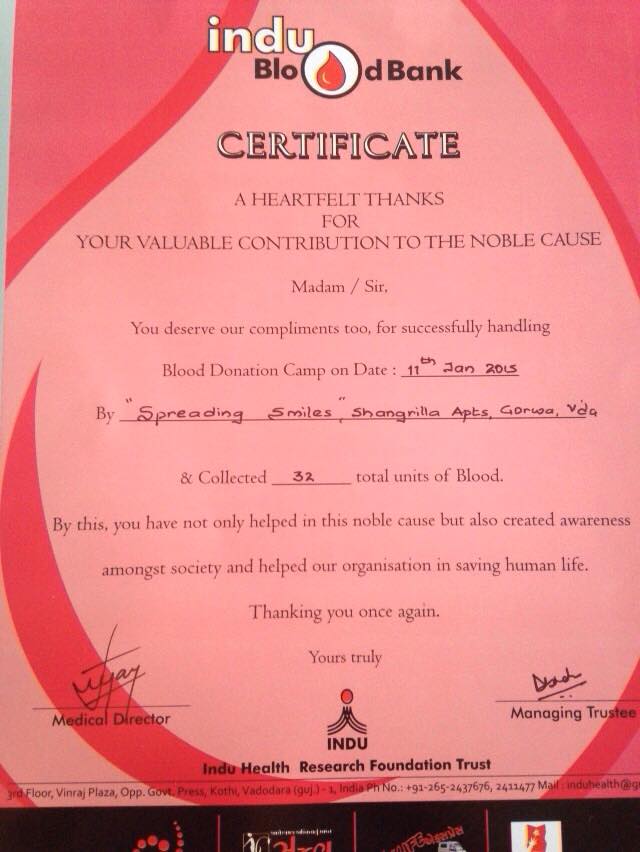 indu
Blood Bank
CERTIFICATE
A HEARTFELT THANKS
FOR
YOUR VALUABLE CONTRIBUTION TO THE NOBLE CAUSE
Madam / Sir,
You deserve our compliments too, for successfully handling
Blood Donation Camp on Date : 11th Jan 2015
By "Spreading Smiles", Shangrilla Apts, Gorwa, Vda
& Collected 32 total units of Blood.
By this, you have not only helped in this noble cause but also created awareness
amongst society and helped our organisation in saving human life.
Thanking you once again.
Yours truly
Medical Director
Managing Trustee
INDU
Indu Health Research Foundation Trust
3rd Floor, Vinraj Plaza, Opp. Govt. Press, Kothi, Vadodara (guj.) - 1, India Ph No.: +91-265-2437676, 2411477 Mail : induhealth@g